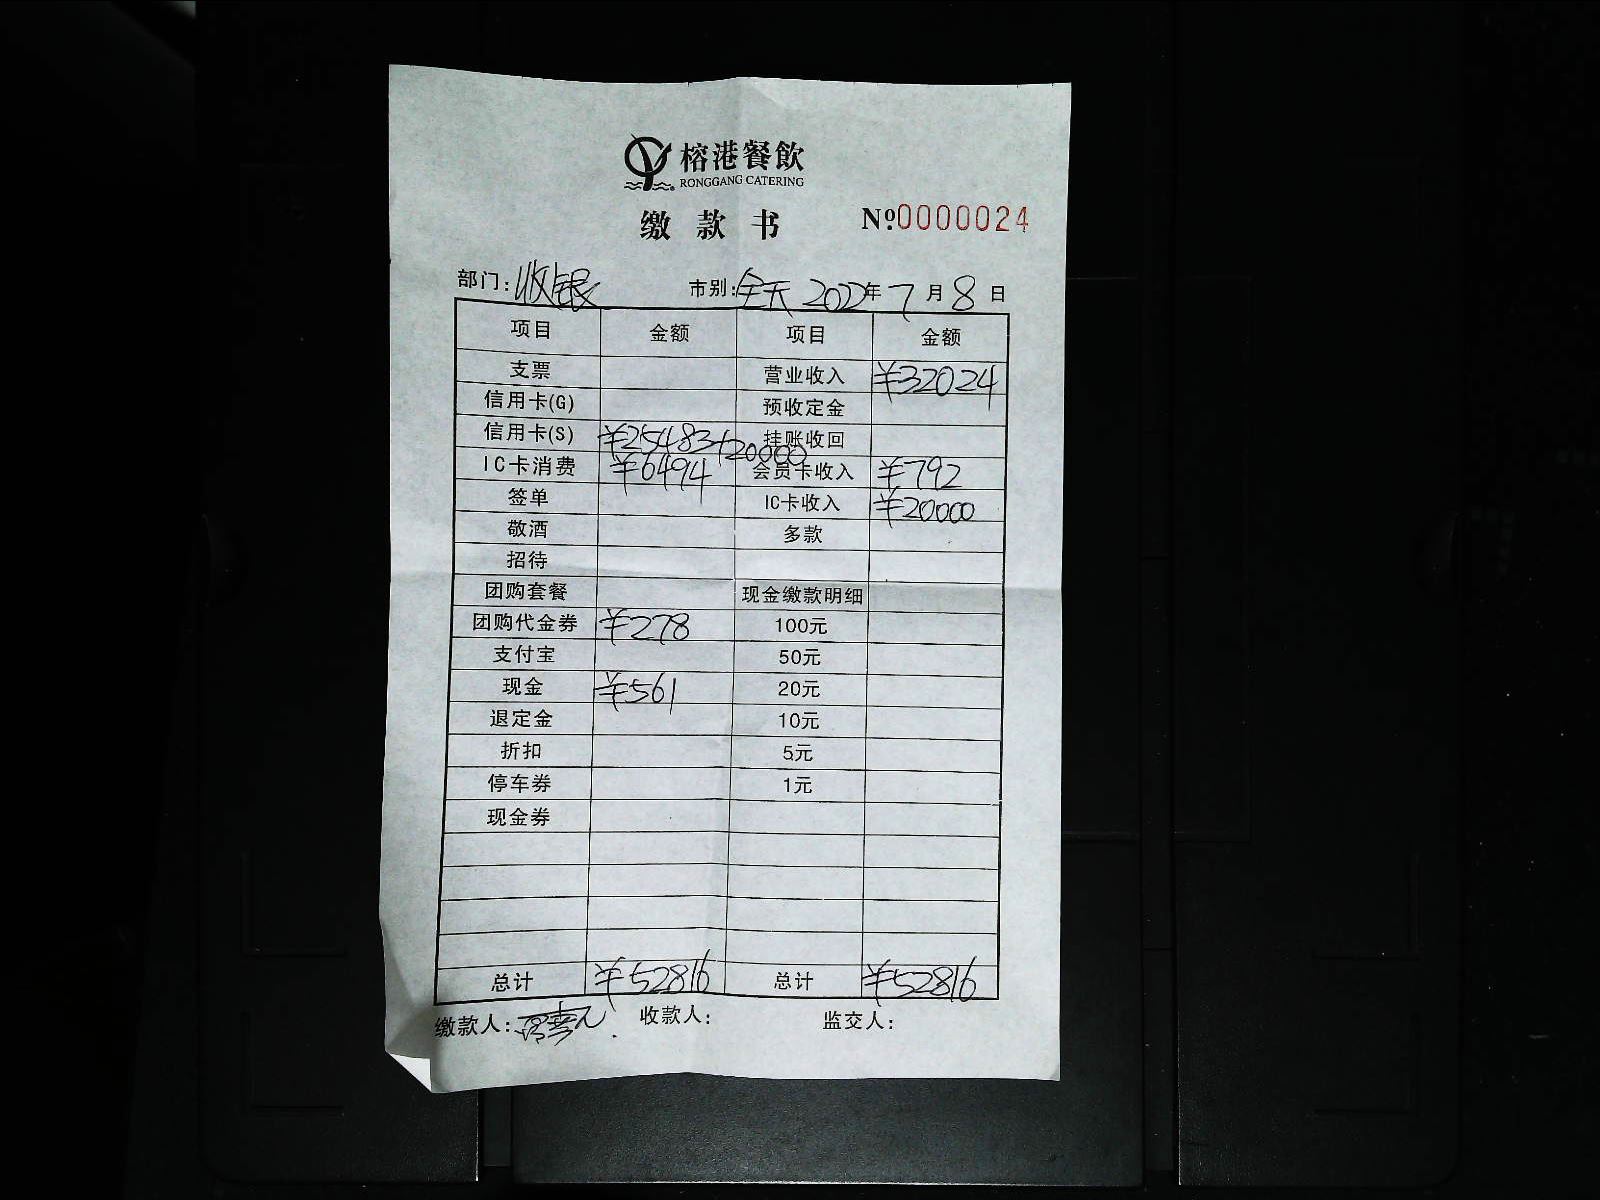 榕港餐飲
RONGGANG CATERING
缴款书 №0000024
部门：收银 市别：全天 2022年7月8日
项目 金额 项目 金额
支票 营业收入 ¥32024
信用卡(G) 预收定金
信用卡(S) ¥25483+20000 挂账收回
IC卡消费 ¥6494 会员卡收入 ¥792
签单 IC卡收入 ¥20000
敬酒 多款
招待
团购套餐 现金缴款明细
团购代金券 ¥278 100元
支付宝 50元
现金 ¥561 20元
退定金 10元
折扣 5元
停车券 1元
现金券
总计 ¥52816 总计 ¥52816
缴款人： 收款人： 监交人：